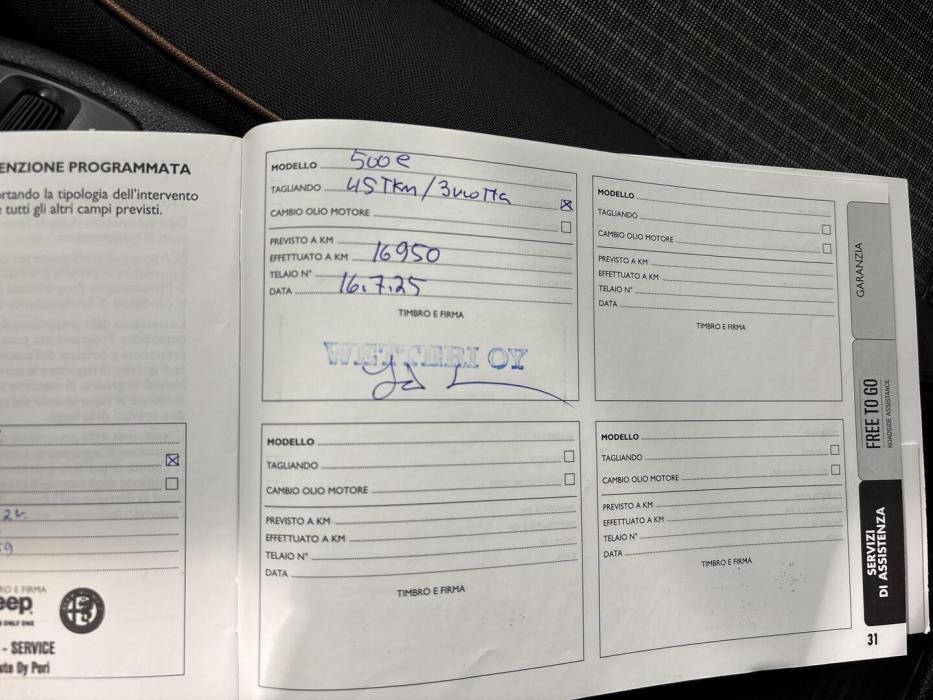 ENZIONE PROGRAMMATA
rtando la tipologia dell'intervento
e tutti gli altri campi previsti.
22.
59
RO E FIRMA
eep
ONLY ONE
- SERVICE
uto Oy Pori
MODELLO 500e
TAGLIANDO 45Tkm/3vuotta
CAMBIO OLIO MOTORE
PREVISTO A KM
EFFETTUATO A KM 16950
TELAIO N°
DATA 16.7.25
TIMBRO E FIRMA
WETTERI OY
MODELLO
TAGLIANDO
CAMBIO OLIO MOTORE
PREVISTO A KM
EFFETTUATO A KM
TELAIO N°
DATA
TIMBRO E FIRMA
MODELLO
TAGLIANDO
CAMBIO OLIO MOTORE
PREVISTO A KM
EFFETTUATO A KM
TELAIO N°
DATA
TIMBRO E FIRMA
MODELLO
TAGLIANDO
CAMBIO OLIO MOTORE
PREVISTO A KM
EFFETTUATO A KM
TELAIO N°
DATA
TIMBRO E FIRMA
GARANZIA
FREE TO GO
ROADSIDE ASSISTANCE
SERVIZI
DI ASSISTENZA
31